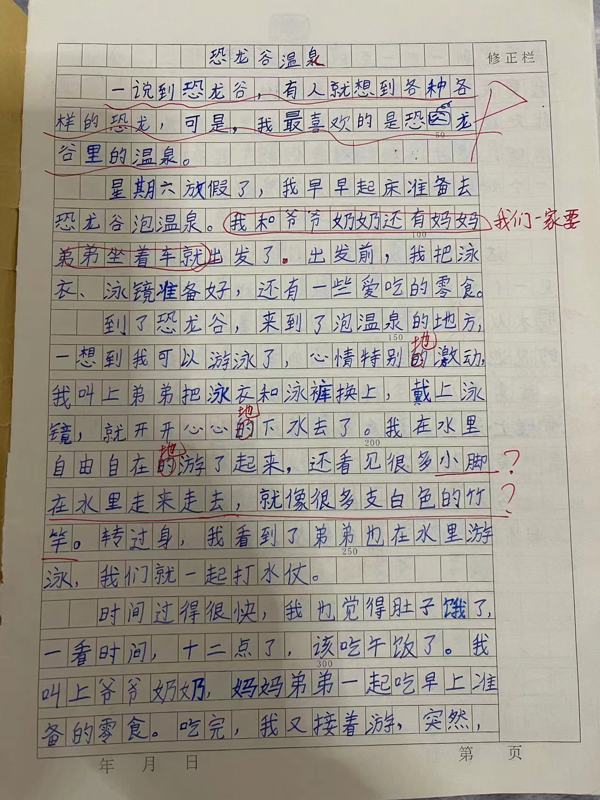 恐龙谷温泉
修正栏
一说到恐龙谷，有人就想到各种各
样的恐龙，可是，我最喜欢的是恐龙
50
谷里的温泉。
星期六放假了，我早早起床准备去
恐龙谷泡温泉。我和爷爷奶奶还有妈妈
我们一家要
100
弟弟坐着车就出发了。出发前，我把泳
衣、泳镜准备好，还有一些爱吃的零食。
到了恐龙谷，来到了泡温泉的地方，
150
地
一想到我可以游泳了，心情特别的激动，
我叫上弟弟把泳衣和泳裤换上，戴上泳
地
镜，就开开心心的下水去了。我在水里
200
地
自由自在的游了起来，还看见很多小脚？
在水里走来走去，就像很多支白色的竹？
竿。转过身，我看到了弟弟也在水里游
250
泳，我们就一起打水仗。
时间过得很快，我也觉得肚子饿了，
一看时间，十二点了，该吃午饭了。我
300
叫上爷爷奶奶，妈妈弟弟一起吃早上准
备的零食。吃完，我又接着游，突然，
年 月 日
第 页